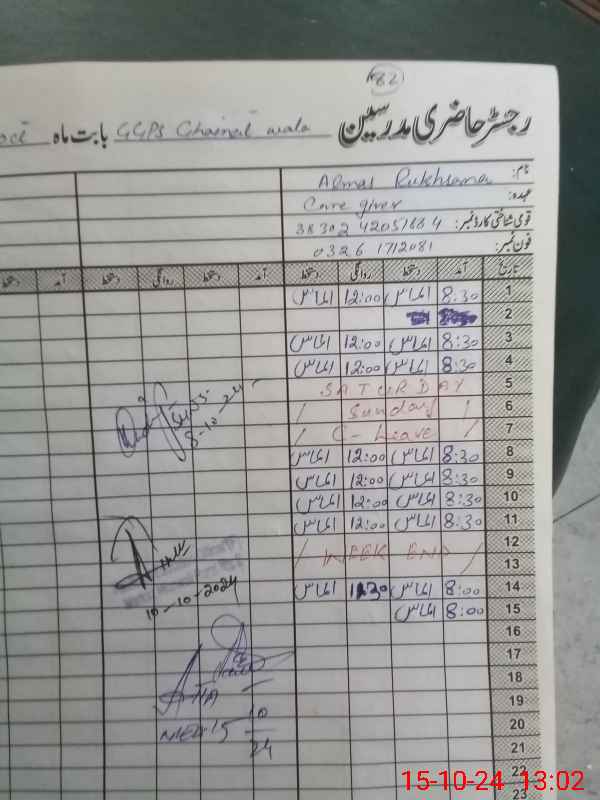 82
رجسٹر حاضری مدرسین بابت ماہ GGPS Chainat wala oct
نام: Almas Rukhsana
عہدہ: Care giver
قومی شناختی کارڈ نمبر: 38302 4205166 4
فون نمبر: 0326 1712081
تاریخ آمد دستخط روانگی دستخط آمد دستخط روانگی دستخط آمد دستخط
1 8:30 الماس 12:00 الماس
2
3 8:30 الماس 12:00 الماس
4 8:30 الماس 12:00 الماس
5 SATURDAY
6 Sunday
7 C-Leave
8 8:30 الماس 12:00 الماس
9 8:30 الماس 12:00 الماس
10 8:30 الماس 12:00 الماس
11 8:30 الماس 12:00 الماس
12 WEEK END
13
14 8:00 الماس 1:30 الماس
15 8:00 الماس
16
17
18
19
20
21
22
23
8-10-24
10-10-2024
15 10 24
15-10-24 13:02